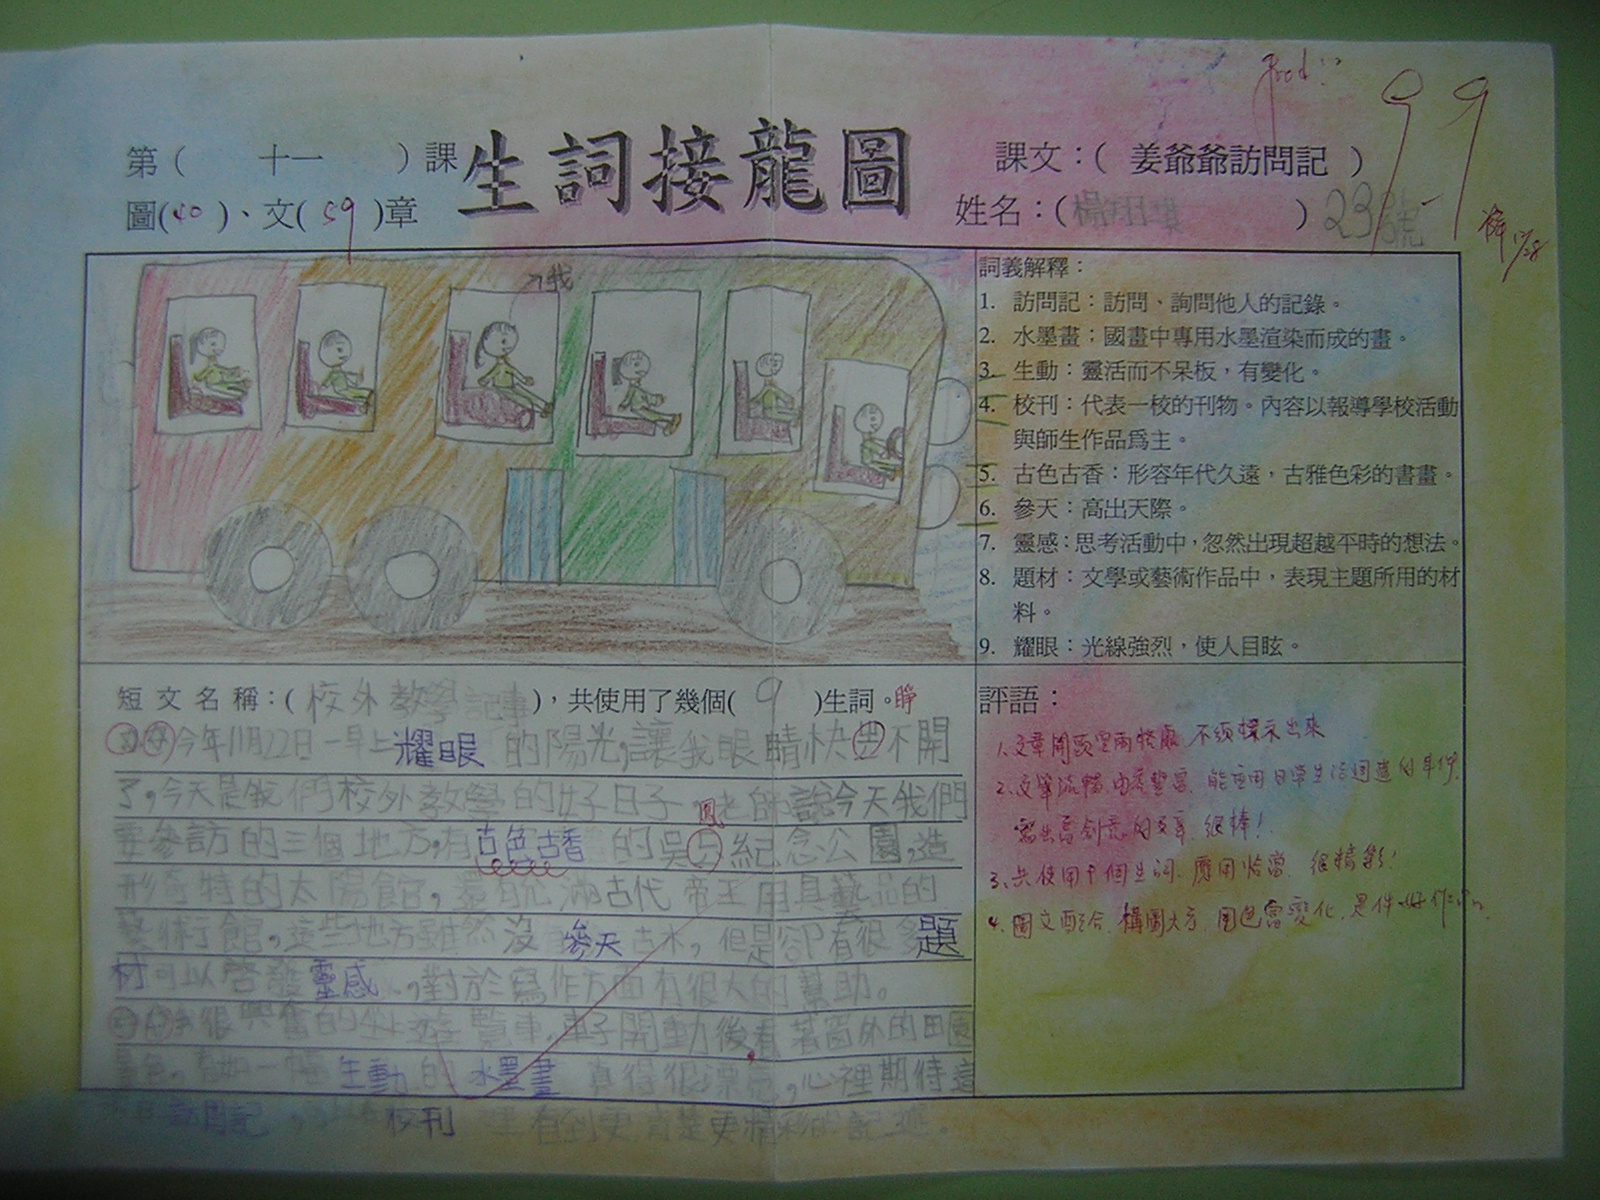 good
99
第（ 十一 ）課 生詞接龍圖 課文：( 姜爺爺訪問記 )
圖(40)、文(59)章 姓名：( ) 23號
12/28
我
詞義解釋：
1. 訪問記：訪問、詢問他人的記錄。
2. 水墨畫；國畫中專用水墨渲染而成的畫。
3. 生動：靈活而不呆板，有變化。
4. 校刊：代表一校的刊物。內容以報導學校活動
與師生作品為主。
5. 古色古香：形容年代久遠，古雅色彩的書畫。
6. 參天：高出天際。
7. 靈感：思考活動中，忽然出現超越平時的想法。
8. 題材：文學或藝術作品中，表現主題所用的材
料。
9. 耀眼：光線強烈，使人目眩。
短文名稱：( 校外教學記事 )，共使用了幾個( 9 )生詞。
睜
今年11月22日一早上耀眼的陽光，讓我眼睛快 不開
了，今天是我們校外教學的好日子，老師說今天我們
鳳
要參訪的三個地方，有古色古香的吳 紀念公園，造
形奇特的太陽館，還有充滿古代帝王用具藝品的
藝術館，這些地方雖然沒參天古木，但是卻有很多題
材可以啓發靈感，對於寫作方面有很大的幫助。
很興奮的坐上遊覽車，車子開動後看著窗外的田園
景色，有如一幅生動的水墨畫 真得很漂亮，心裡期待這
訪問記， 校刊 有 更精彩的記述。
評語：
1. 文章開頭空兩格處，不須標示出來
2. 文筆流暢，內容豐富，能應用日常生活週遭的事件，
寫出富創意的文章，很棒！
3. 共使用9個生詞，應用恰當，很精彩！
4. 圖文配合，構圖大方，用色富變化，是件好作品。